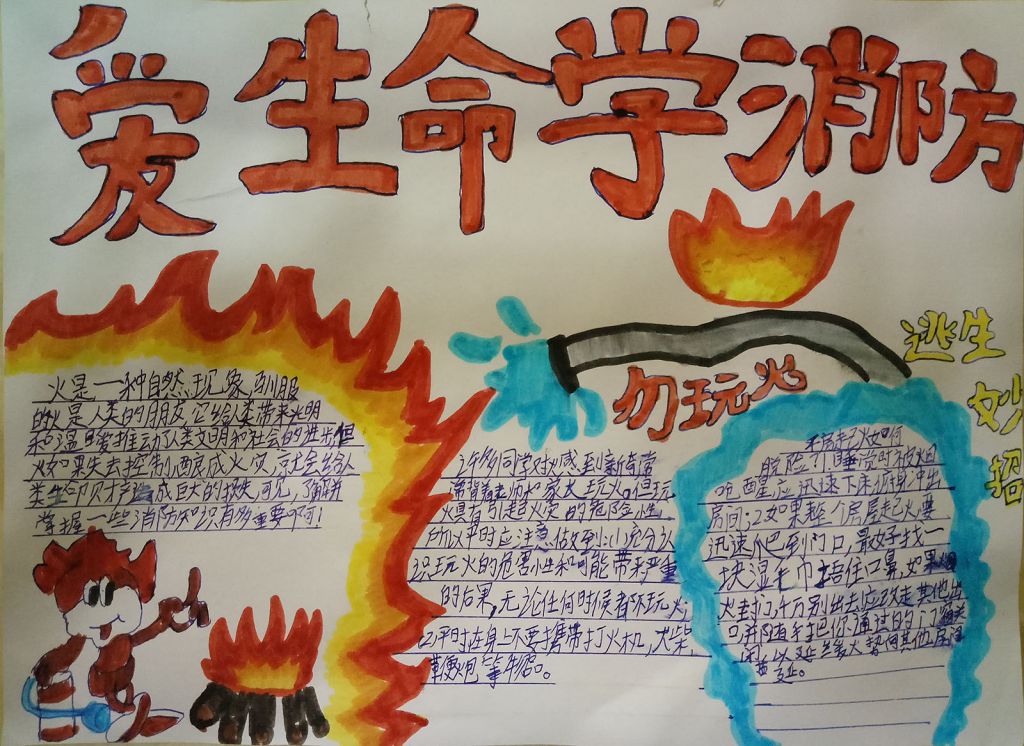 爱生命学消防
火是一种自然现象,驯服
的火是人类的朋友,它给人类带来光明
和温暖,推动了人类文明和社会的进步。但
火如果失去控制,酿成火灾,就会给人
类生命财产造成巨大的损失,可见,了解并
掌握一些消防知识有多重要啊!
勿玩火
许多同学对火感到新奇,常
常背着老师和家长玩火。但玩
火具有引起火灾的危险性,
所以平时应注意做到:1.充分认
识玩火的危害性和可能带来严重
的后果,无论任何时候都不玩火;
2.平时在身上不要携带打火机,火柴,
鞭炮等物品。
逃生
妙
招
房屋起火如何
脱险:1.睡觉时被烟
呛醒,应迅速下床俯身冲出
房间;2.如果整个房屋起火,要
迅速爬到门口,最好找一
块湿毛巾捂住口鼻,如果烟
火封门,千万别出去!应改走其他出
口,并随手把你通过的门窗关
闭,以延缓火势向其他房间
蔓延。